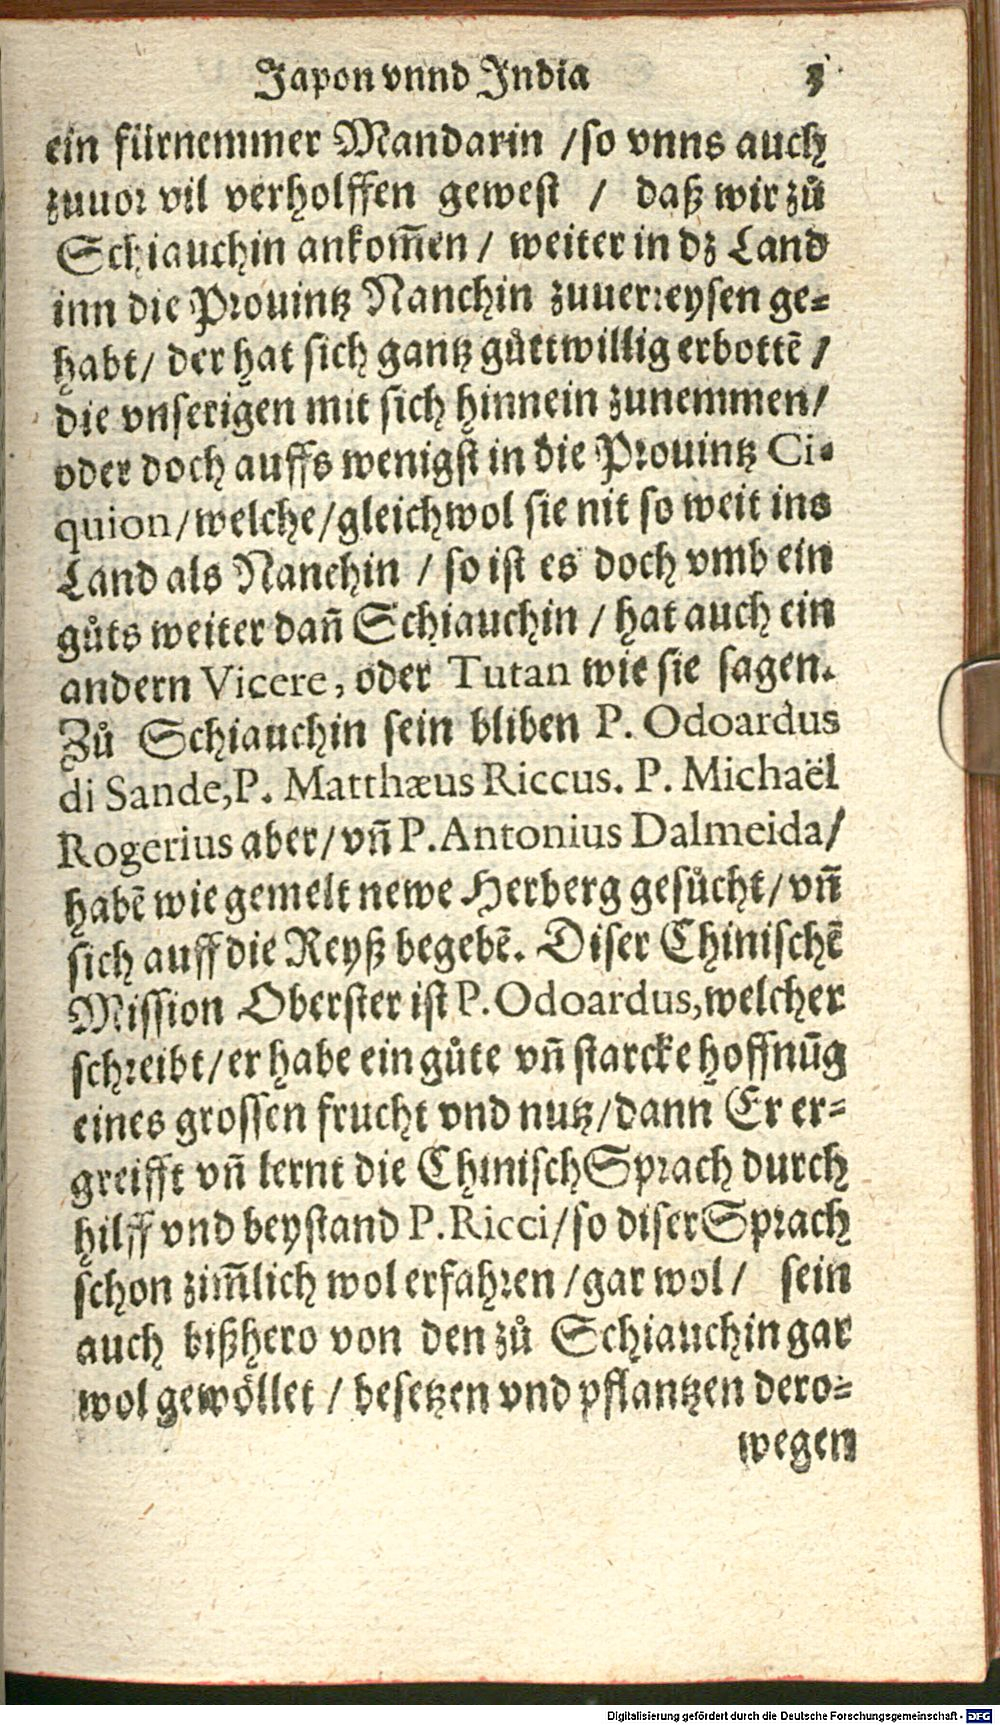 Japon vnnd India 3
ein fürnemmer Mandarin / so vnns auch
zuuor vil verholffen gewest / daß wir zů
Schiauchin ankom̃en / weiter in dz Land
inn die Prouintz Nanchin zuuerreysen ge⸗
habt / der hat sich gantz gůttwillig erbottẽ /
die vnserigen mit sich hinnein zunemmen /
oder doch auffs wenigst in die Prouintz Ci⸗
quion / welche / gleichwol sie nit so weit ins
Land als Nanchin / so ist es doch vmb ein
gůts weiter dañ Schiauchin / hat auch ein
andern Vicere, oder Tutan wie sie sagen.
Zů Schiauchin sein bliben P. Odoardus
di Sande, P. Matthæus Riccus. P. Michaël
Rogerius aber / vñ P. Antonius Dalmeida /
habẽ wie gemelt newe Herberg gesůcht / vñ
sich auff die Reyß begebẽ. Diser Chinischẽ
Mission Oberster ist P. Odoardus, welcher
schreibt / er habe ein gůte vñ starcke hoffnũg
eines grossen frucht vnd nutz / dann Er er⸗
greifft vñ lernt die Chinisch Sprach durch
hilff vnd beystand P. Ricci / so diser Sprach
schon zim̃lich wol erfahren / gar wol / sein
auch bißhero von den zů Schiauchin gar
wol gewöllet / besetzen vnd pflantzen dero⸗
wegen
Digitalisierung gefördert durch die Deutsche Forschungsgemeinschaft - DFG